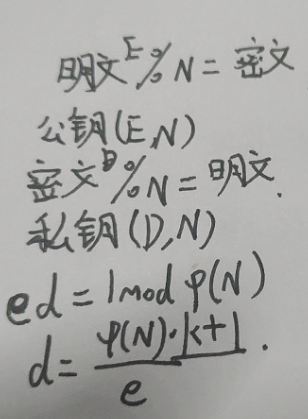 明文^E % N = 密文
公钥(E,N)
密文^D % N = 明文.
私钥(D,N)
ed = 1 mod φ(N)
d = φ(N)·k+1 / e .